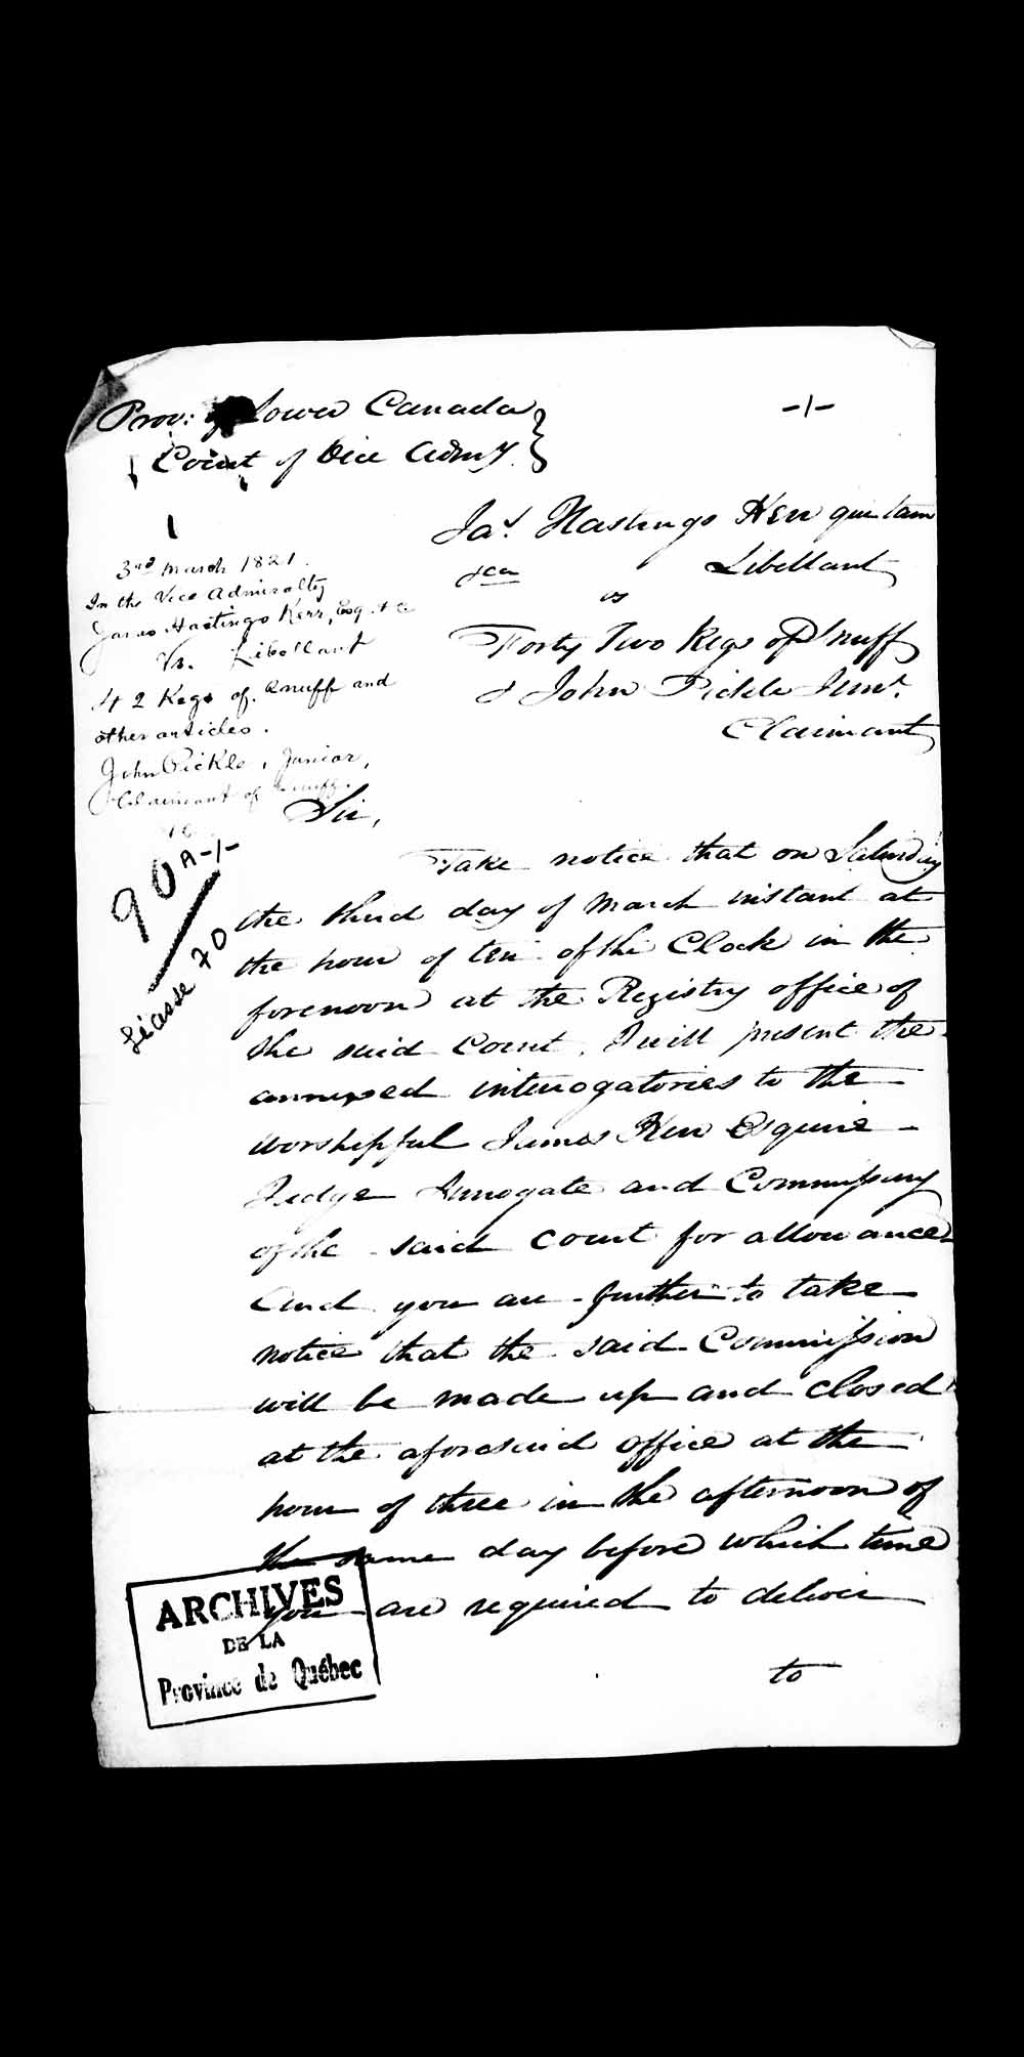 Prov: of Lower Canada
Court of Vice Admy.
-1-
1
Jas. Hastings Kerr qui tam
&ca Libellant
vs
Forty Two Kegs of Snuff
& John Pickle Junr.
Claimant
3rd March 1821.
In the Vice Admiralty
James Hastings Kerr, Esq. &c
Vs. Libellant
42 Kegs of Snuff and
other articles.
John Pickle, Junior,
Claimant of Snuff.
90 A-1-
Liasse 70
Sir,
Take notice that on Saturday
the third day of March instant at
the hour of ten of the Clock in the
forenoon at the Registry office of
the said Court, I will present the
annexed interrogatories to the
worshipful James Kerr Esquire
Judge Surrogate and Commissary
of the said Court for allowance
And you are further to take
notice that the said Commission
will be made up and closed
at the aforesaid office at the
hour of three in the afternoon of
the same day before which time
you are required to deliver
to
ARCHIVES
DE LA
Province de Québec